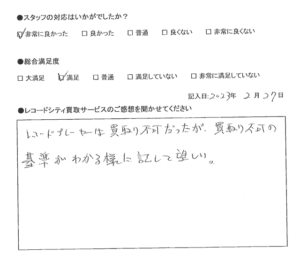 ●スタッフの対応はいかがでしたか?
☑非常に良かった □良かった □普通 □良くない □非常に良くない
●総合満足度
□大満足 ☑満足 □普通 □満足していない □非常に満足していない
記入日:2023年 2月 27日
●レコードシティ買取サービスのご感想を聞かせてください
レコードプレーヤーは買取り不可だったが、買取り不可の
基準がわかる様に記して望しい。